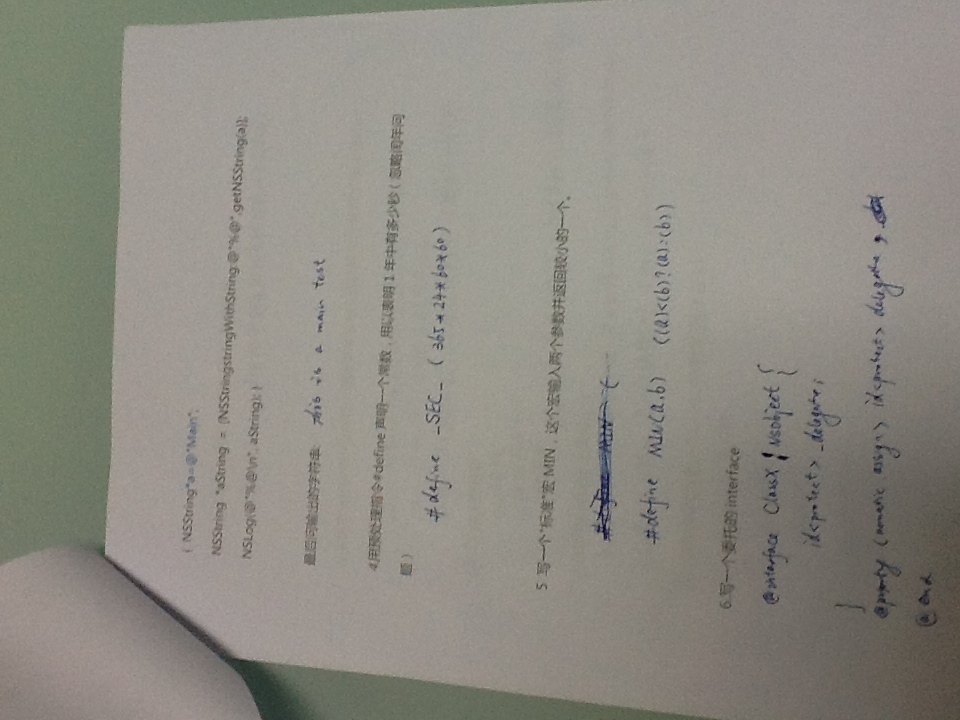 { NSString*a=@"Main";
NSString *aString = [NSStringstringWithString:@"%@",getNSString(a)];
NSLog(@"%@\n", aString); }
最后问输出的字符串: this is a main test
4用预处理指令#define 声明一个常数，用以表明 1 年中有多少秒（忽略闰年问
题）
#define _SEC_ (365*24*60*60)
5 写一个"标准"宏 MIN，这个宏输入两个参数并返回较小的一个。
#define MIN(a,b) ((a)<(b)?(a):(b))
6.写一个委托的 interface
@interface ClassX : NSobject {
id<protect> _delegate;
}
@property (nomatic assign) id<protect> delegate ;
@end